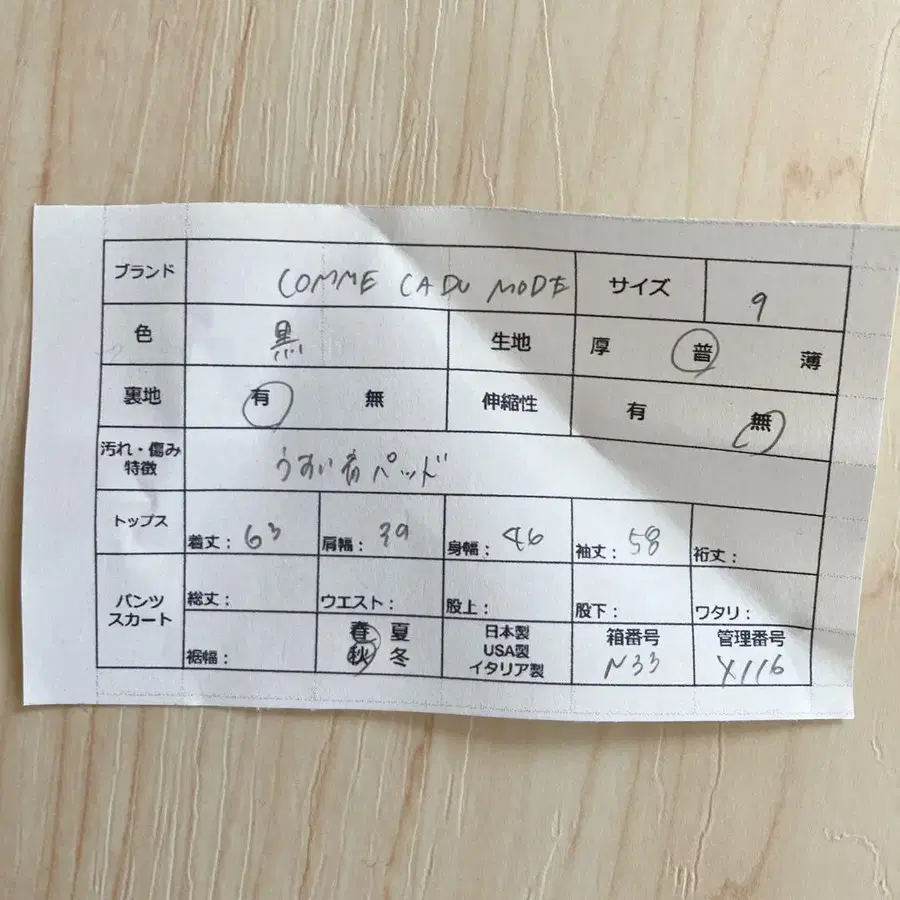 ブランド COMME CA DU MODE サイズ 9
色 黒 生地 厚 普 薄
裏地 有 無 伸縮性 有 無
汚れ・傷み
特徴 うすい肩パッド
トップス 着丈： 63 肩幅： 39 身幅： 46 袖丈： 58 裄丈：
パンツ
スカート 総丈： ウエスト： 股上： 股下： ワタリ：
裾幅： 春 夏
秋 冬
日本製
USA製
イタリア製
箱番号
N33
管理番号
Y116